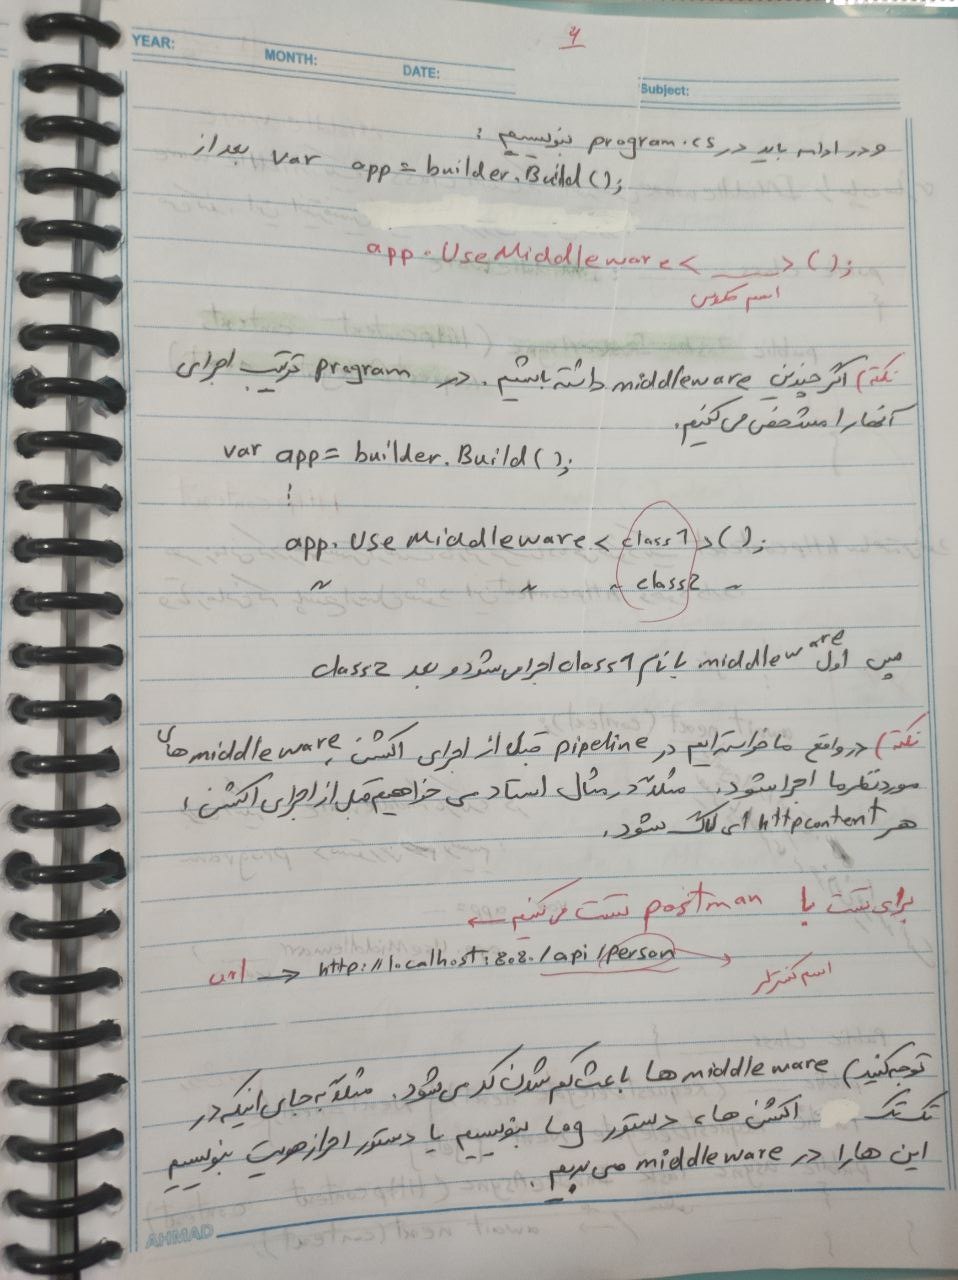 ۴
YEAR:
MONTH:
DATE:
Subject:
و در ادامه باید در program.cs بنویسیم :
بعد از var app = builder.Build();
app.UseMiddleware< ___ >();
اسم کلاس
نکته) اگر چندین middleware داشته باشیم. در program ترتیب اجرای
آنها را مشخص می کنیم.
var app = builder.Build();
⋮
app.UseMiddleware<class1>();
~ ~ ~ class2 ~
پس اول middleware با نام class1 اجرا می شود و بعد class2
نکته) در واقع ما خواسته ایم در pipeline قبل از اجرای اکشن، middleware های
مورد نظر ما اجرا شود. مثلاً در مثال استاد می خواهیم قبل از اجرای اکشن،
هر httpcontent ای لاگ شود.
برای تست با postman تست می کنیم ←
url → http://localhost:8080/api/person
اسم کنترلر
توجه کنید) middleware ها باعث کم شدن کد می شود. مثلاً به جای اینکه در
تک تک اکشن ها، دستور log بنویسیم یا دستور احراز هویت بنویسیم
این ها را در middleware می بریم.
AHMAD